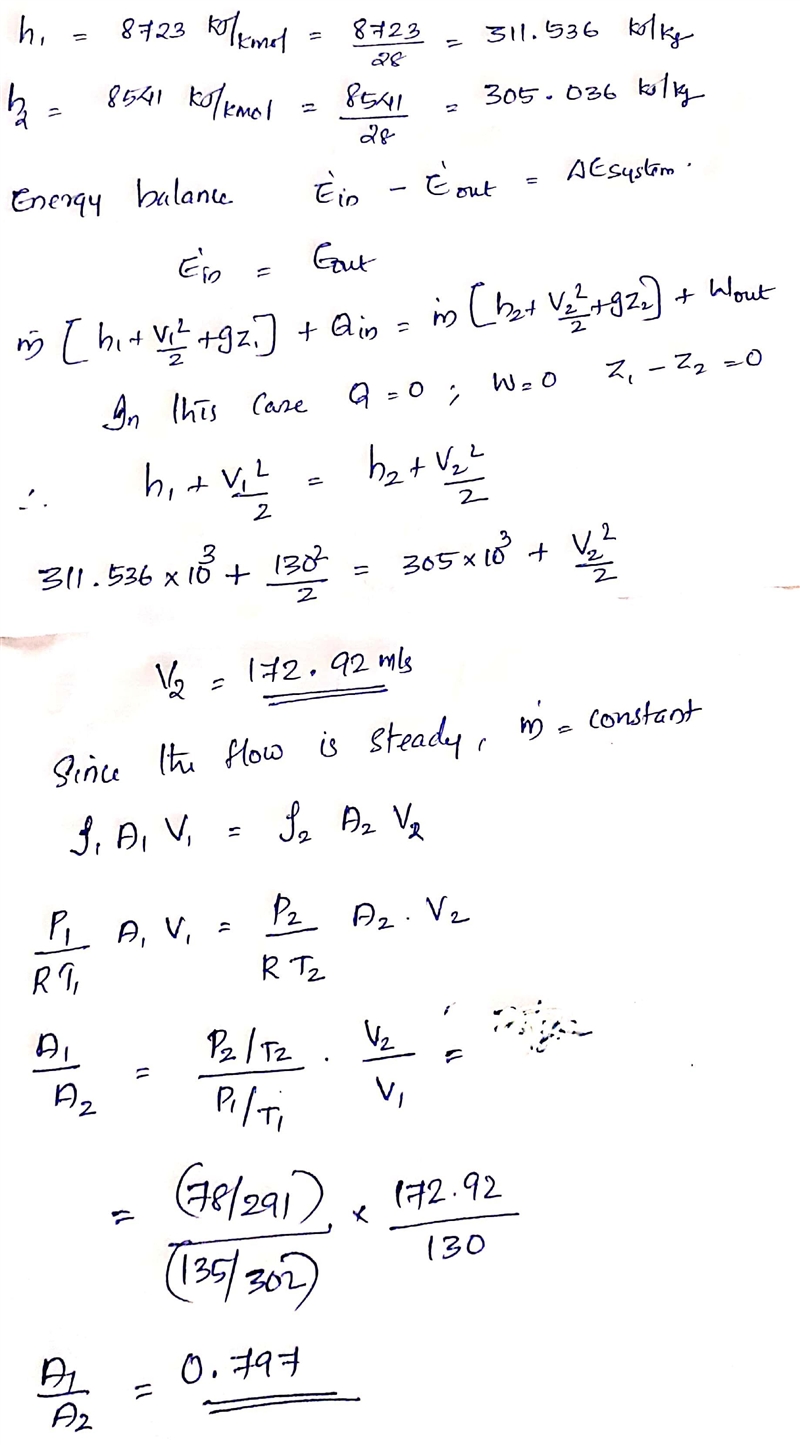 h₁ = 8723 kJ/kmol = 8723/28 = 311.536 kJ/kg
h₂ = 8541 kJ/kmol = 8541/28 = 305.036 kJ/kg
Energy balance Ėin - Ėout = ΔEsystem.
Ėin = Eout
ṁ [h₁ + V₁²/2 + gZ₁] + Qin = ṁ [h₂ + V₂²/2 + gZ₂] + Wout
In this case Q = 0 ; W = 0 Z₁ - Z₂ = 0
∴ h₁ + V₁²/2 = h₂ + V₂²/2
311.536 x 10³ + 130²/2 = 305 x 10³ + V₂²/2
V₂ = 172.92 m/s
Since the flow is steady, ṁ = constant
ρ₁ A₁ V₁ = ρ₂ A₂ V₂
P₁/RT₁ A₁ V₁ = P₂/RT₂ A₂ . V₂
A₁/A₂ = (P₂/T₂)/(P₁/T₁) . V₂/V₁ =
= (78/291)/(135/302) x 172.92/130
A₁/A₂ = 0.797